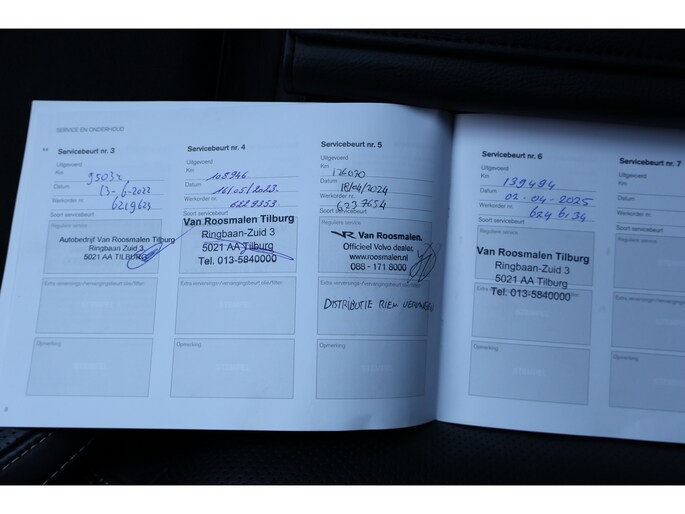 SERVICE EN ONDERHOUD
Servicebeurt nr. 3
Uitgevoerd
Km 95032
Datum 13-6-2022
Werkorder nr. 6219623
Soort servicebeurt
Reguliere service
Autobedrijf Van Roosmalen Tilburg
Ringbaan Zuid 3
5021 AA TILBURG
Extra verversings-/vervangingsbeurt olie/filter:
Opmerking
8
Servicebeurt nr. 4
Uitgevoerd
Km 108966
Datum 16/05/2023.
Werkorder nr.
Soort servicebeurt
Van Roosmalen Tilburg
Ringbaan-Zuid 3
5021 AA Tilburg
Tel. 013-5840000
Extra verversings-/vervangingsbeurt olie/filter:
Opmerking
Servicebeurt nr. 5
Uitgevoerd
Km
Datum 18/04/2024
Werkorder nr.
Soort servicebeurt
Reguliere service
VR Van Roosmalen,
Officieel Volvo dealer.
www.roosmalen.nl
088 - 171 8000
Extra verversings-/vervangingsbeurt olie/filter:
DISTRIBUTIE RIEM VERVANGEN
Opmerking
Servicebeurt nr. 6
Uitgevoerd
Km 139494
Datum 02-04-2025
Werkorder nr. 6246134
Soort servicebeurt
Reguliere service
Van Roosmalen Tilburg
Ringbaan-Zuid 3
5021 AA Tilburg
Tel. 013-5840000
Opmerking
Servicebeurt nr. 7
Uitgevoerd
Km
Datum
Werkorder nr.
Soort servicebeurt
Reguliere service
Opmerking